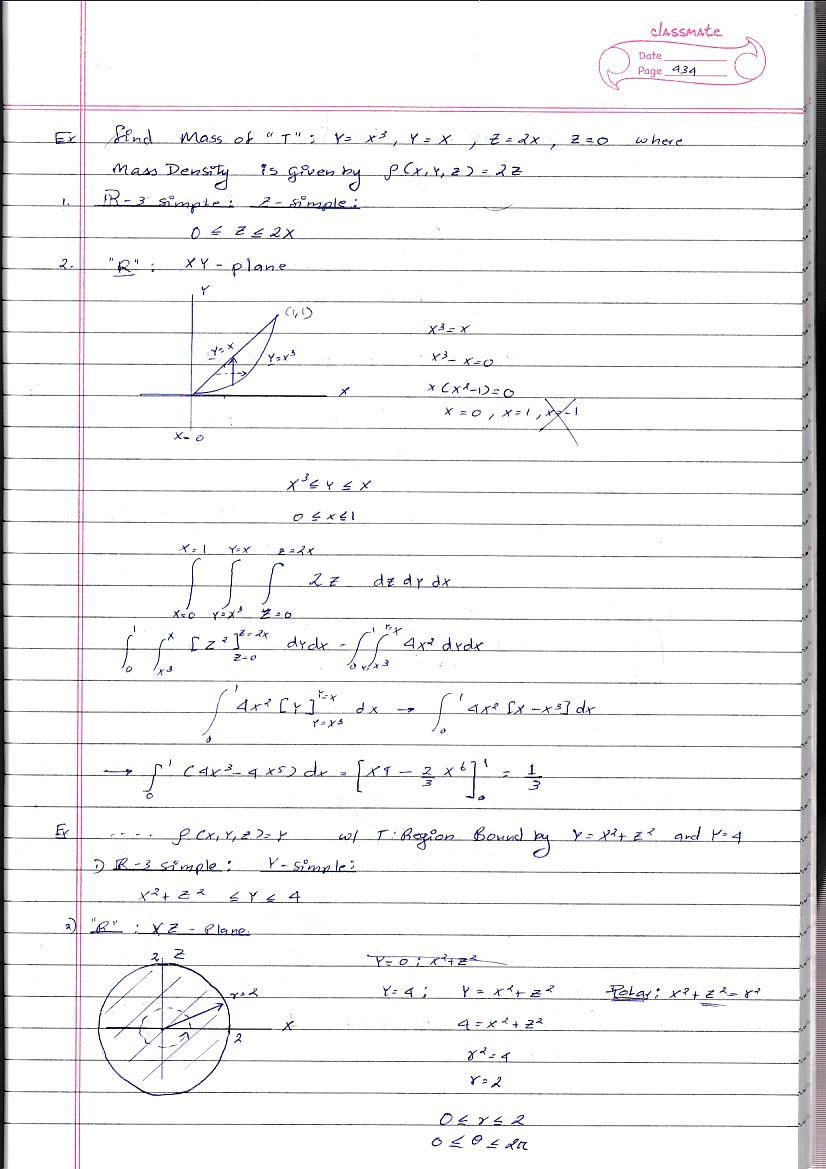 classmate
Date
Page 434
Ex find Mass of "T": Y= x³, Y=x, z=2x, z=0 where
Mass Density is given by ρ(x,Y,z)=2z
1. R-3 simple: z-simple:
0 ≤ z ≤ 2x
2. "R": XY-plane
Y
(1,1)
Y=x
Y=x³
X
X=0
x³=x
x³-x=0
x(x²-1)=0
x=0, x=1, x=-1
x³≤Y≤x
0≤x≤1
∫_{x=0}^{x=1} ∫_{Y=x³}^{Y=x} ∫_{z=0}^{z=2x} 2z dz dY dx
∫_0^1 ∫_{x³}^{x} [z²]_{z=0}^{z=2x} dYdx = ∫_0^1 ∫_{Y=x³}^{Y=x} 4x² dYdx
∫_0^1 4x² [Y]_{Y=x³}^{Y=x} dx → ∫_0^1 4x² [x-x³] dx
→ ∫_0^1 (4x³-4x⁵) dx = [x⁴ - 2/3 x⁶]_0^1 = 1/3
Ex .... ρ(x,Y,z)=Y w/ T: Region Bound by Y=x²+z² and Y=4
1) R-3 simple: Y-simple:
x²+z² ≤ Y ≤ 4
2) "R": XZ-Plane
2 Z
r=2
X
2
Y=0; x²+z²
Y=4; Y=x²+z² Polar: x²+z²=r²
4=x²+z²
r²=4
r=2
0≤r≤2
0≤θ≤2π